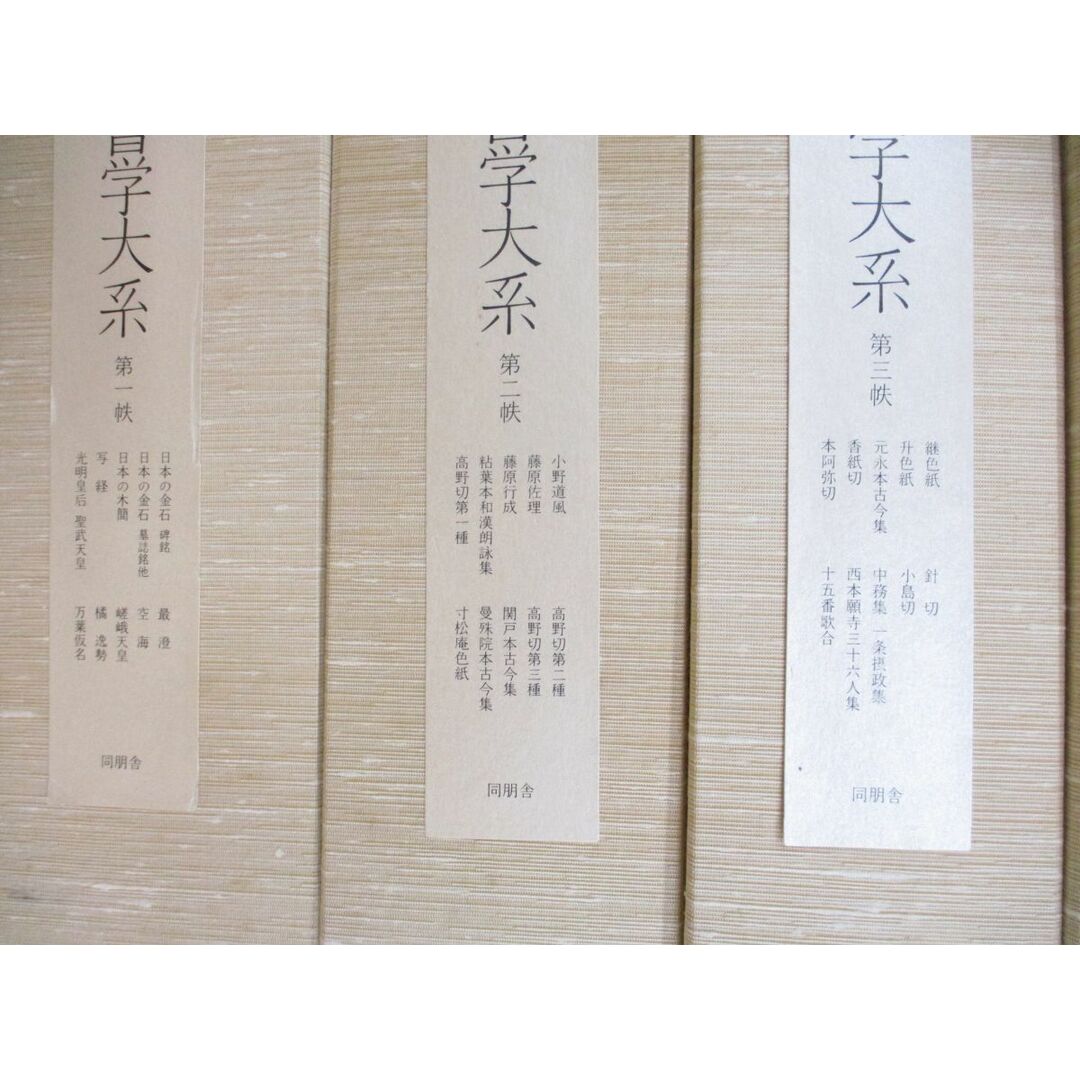 学大系
第一帙
日本の金石 碑銘
日本の金石 墓誌銘他
日本の木簡
写経
光明皇后 聖武天皇
最澄
空海
嵯峨天皇
橘逸勢
万葉仮名
同朋舎
学大系
第二帙
小野道風
藤原佐理
藤原行成
粘葉本和漢朗詠集
高野切第一種
高野切第二種
高野切第三種
関戸本古今集
曼殊院本古今集
寸松庵色紙
同朋舎
学大系
第三帙
継色紙
升色紙
元永本古今集
香紙切
本阿弥切
針切
小島切
中務集 一条摂政集
西本願寺三十六人集
十五番歌合
同朋舎